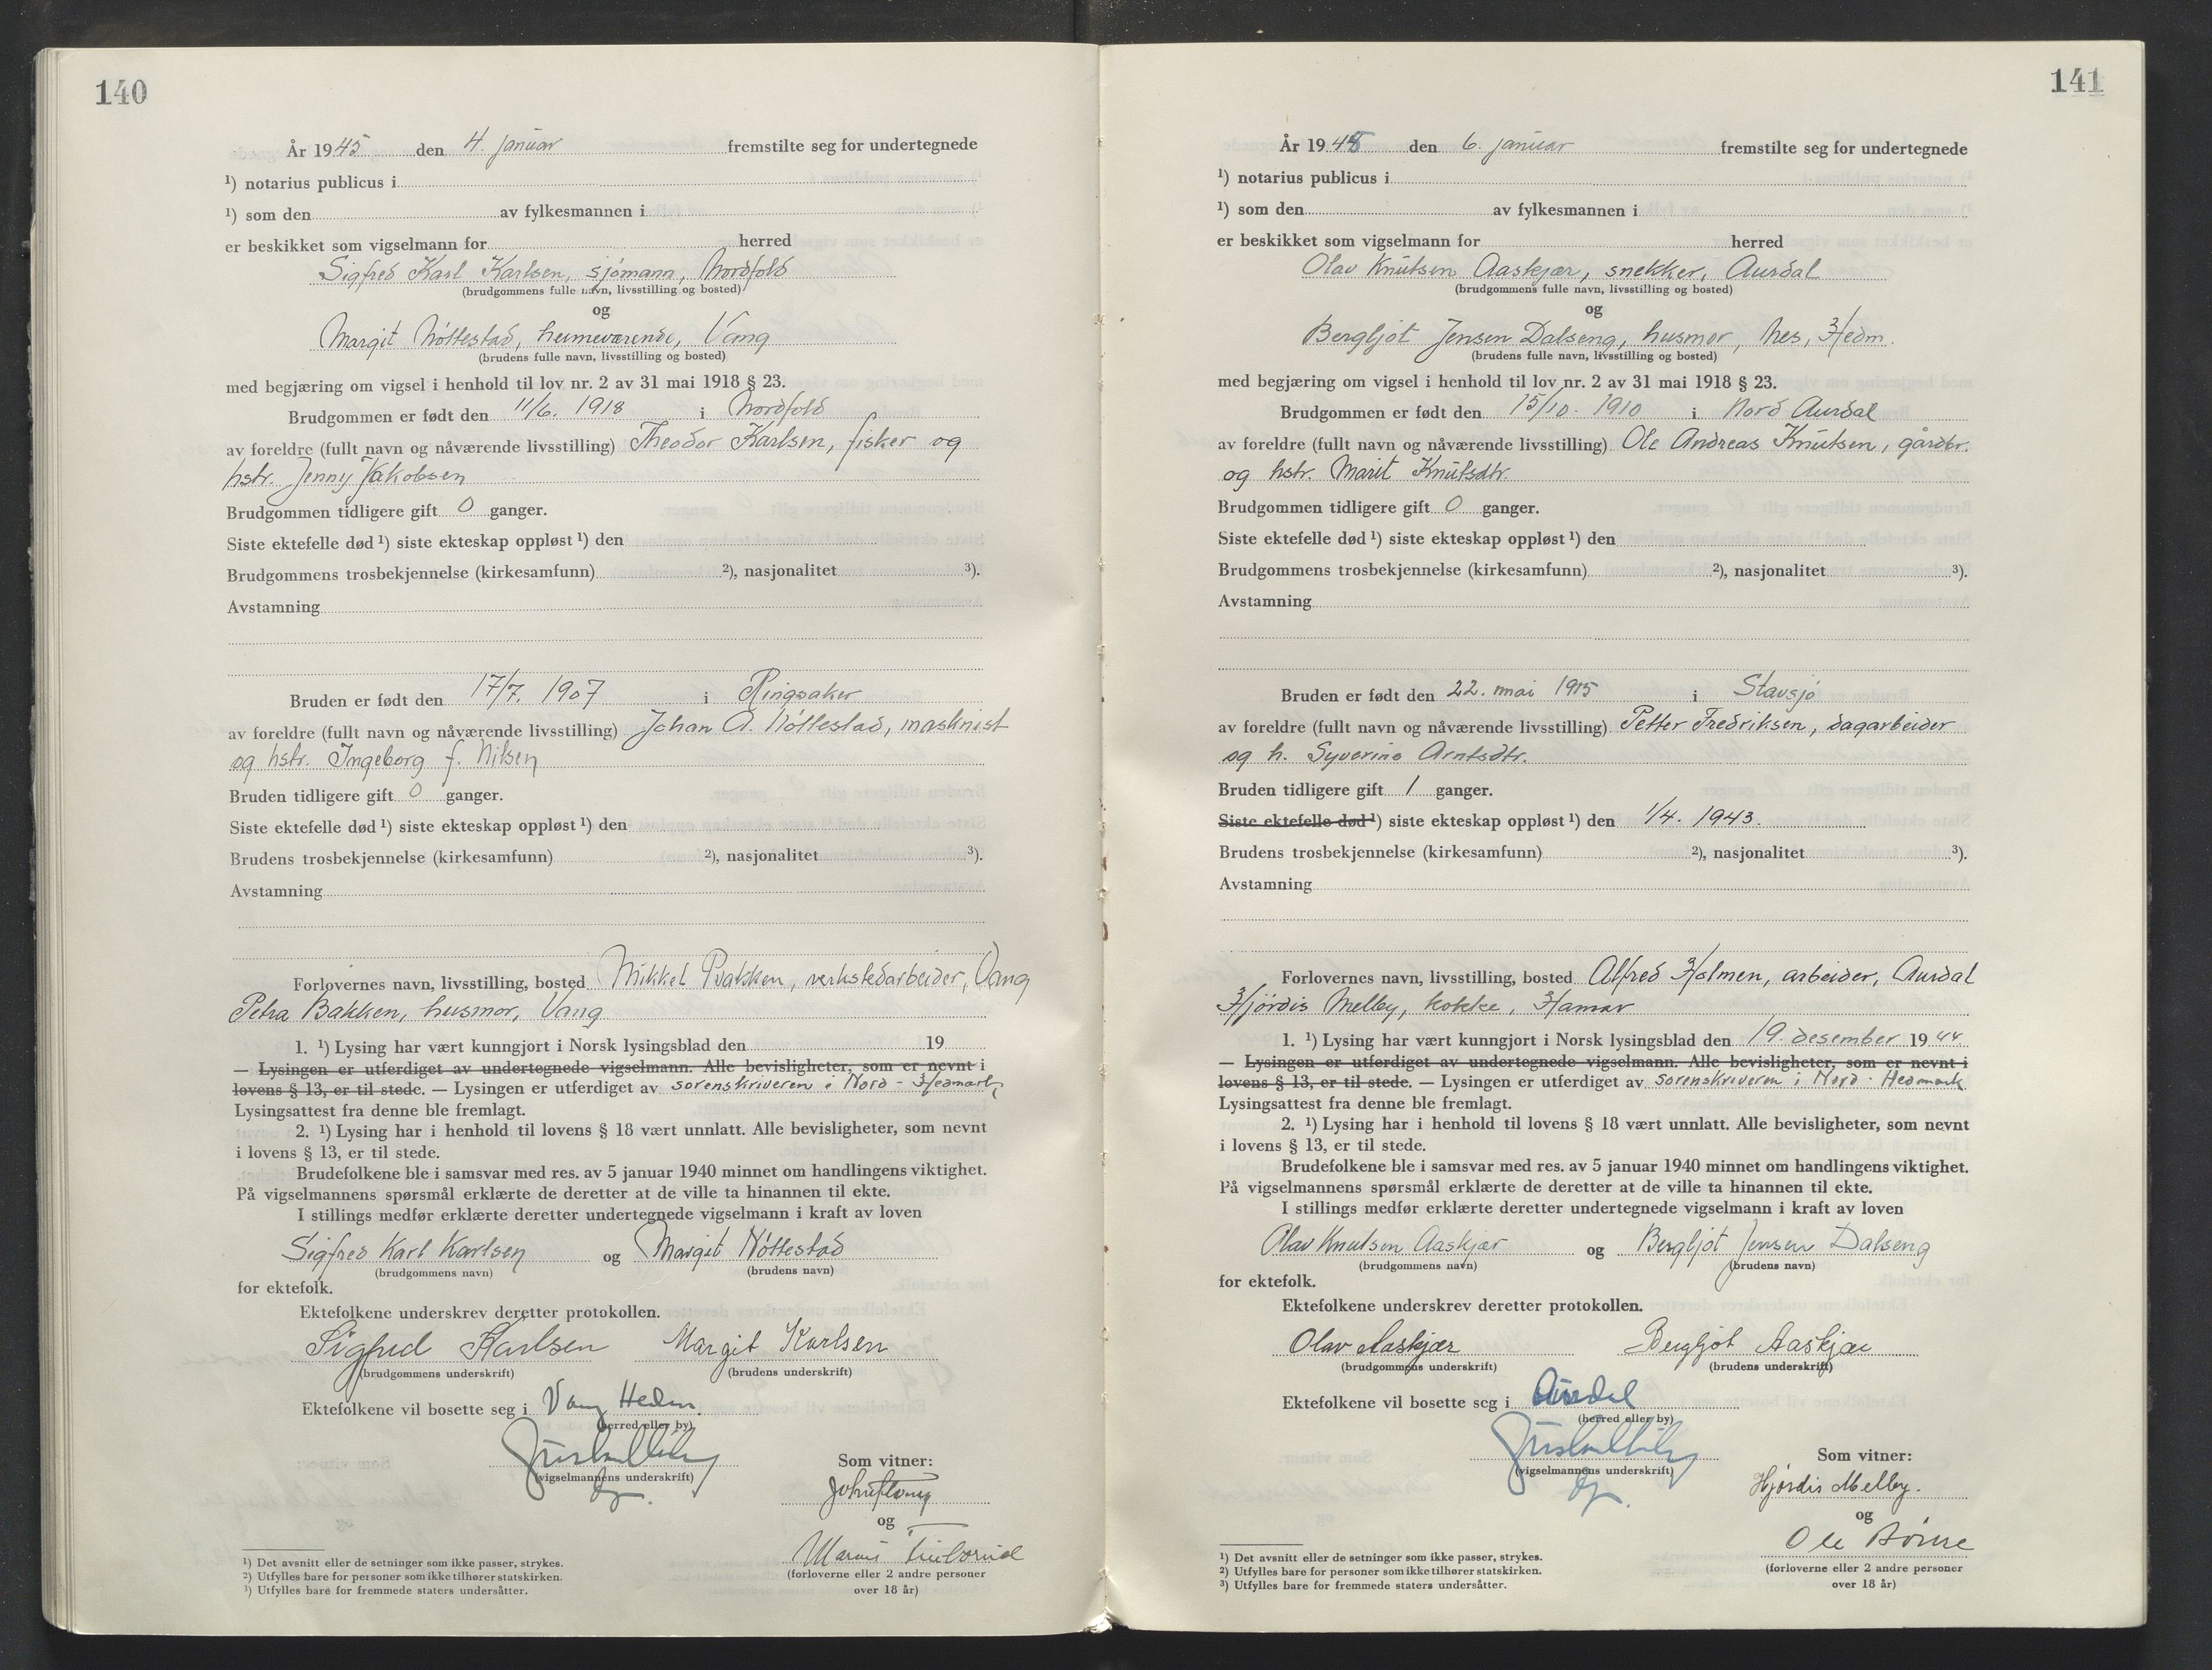 140
År 1945 den 4. januar fremstilte seg for undertegnede
¹) notarius publicus i
¹) som den av fylkesmannen i
er beskikket som vigselmann for herred
Sigfred Karl Karlsen, sjømann, Nordfold
(brudgommens fulle navn, livsstilling og bosted)
og
Margit Nøttestad, heimeværende, Vang
(brudens fulle navn, livsstilling og bosted)
med begjæring om vigsel i henhold til lov nr. 2 av 31 mai 1918 § 23.
Brudgommen er født den 11/6. 1918 i Nordfold
av foreldre (fullt navn og nåværende livsstilling) Theodor Karlsen, fisker og
hstr. Jenny Jakobsen
Brudgommen tidligere gift 0 ganger.
Siste ektefelle død ¹) siste ekteskap oppløst ¹) den
Brudgommens trosbekjennelse (kirkesamfunn) ²), nasjonalitet ³).
Avstamning
Bruden er født den 17/7. 1907 i Ringsaker
av foreldre (fullt navn og nåværende livsstilling) Johan A. Nøttestad, maskinist
og hstr. Ingeborg f. Nilsen
Bruden tidligere gift 0 ganger.
Siste ektefelle død ¹) siste ekteskap oppløst ¹) den
Brudens trosbekjennelse (kirkesamfunn) ²), nasjonalitet ³).
Avstamning
Forlovernes navn, livsstilling, bosted Mikkel Bakken, verkstedarbeider, Vang
Petra Bakken, husmor, Vang
1. ¹) Lysing har vært kunngjort i Norsk lysingsblad den 19
— Lysingen er utferdiget av undertegnede vigselmann. Alle bevisligheter, som er nevnt i
lovens § 13, er til stede. — Lysingen er utferdiget av sorenskriveren i Nord-Hedmark,
Lysingsattest fra denne ble fremlagt.
2. ¹) Lysing har i henhold til lovens § 18 vært unnlatt. Alle bevisligheter, som nevnt
i lovens § 13, er til stede.
Brudefolkene ble i samsvar med res. av 5 januar 1940 minnet om handlingens viktighet.
På vigselmannens spørsmål erklærte de deretter at de ville ta hinannen til ekte.
I stillings medfør erklærte deretter undertegnede vigselmann i kraft av loven
Sigfred Karl Karlsen og Margit Nøttestad
(brudgommens navn) (brudens navn)
for ektefolk.
Ektefolkene underskrev deretter protokollen.
Sigfred Karlsen Margit Karlsen
(brudgommens underskrift) (brudens underskrift)
Ektefolkene vil bosette seg i Vang Hedm.
(herred eller by)
(vigselmannens underskrift)
Som vitner:
og
(forloverne eller 2 andre personer
over 18 år)
¹) Det avsnitt eller de setninger som ikke passer, strykes.
²) Utfylles bare for personer som ikke tilhører statskirken.
³) Utfylles bare for fremmede staters undersåtter.
141
År 1945 den 6. januar fremstilte seg for undertegnede
¹) notarius publicus i
¹) som den av fylkesmannen i
er beskikket som vigselmann for herred
Olav Knutsen Aaskjær, snekker, Aurdal
(brudgommens fulle navn, livsstilling og bosted)
og
Bergljot Jensen Dalseng, husmor, Nes, Hedm.
(brudens fulle navn, livsstilling og bosted)
med begjæring om vigsel i henhold til lov nr. 2 av 31 mai 1918 § 23.
Brudgommen er født den 15/10. 1910 i Nord Aurdal
av foreldre (fullt navn og nåværende livsstilling) Ole Andreas Knutsen, gårdbr.
og hstr. Marit Knutsdtr.
Brudgommen tidligere gift 0 ganger.
Siste ektefelle død ¹) siste ekteskap oppløst ¹) den
Brudgommens trosbekjennelse (kirkesamfunn) ²), nasjonalitet ³).
Avstamning
Bruden er født den 22. mai 1915 i Stavsjø
av foreldre (fullt navn og nåværende livsstilling) Petter Fredriksen, dagarbeider
og h. Syverine Arntsdtr.
Bruden tidligere gift 1 ganger.
Siste ektefelle død ¹) siste ekteskap oppløst ¹) den 1/4. 1943.
Brudens trosbekjennelse (kirkesamfunn) ²), nasjonalitet ³).
Avstamning
Forlovernes navn, livsstilling, bosted Alfred Holmen, arbeider, Aurdal
Hjørdis Melby, kokke, Hamar
1. ¹) Lysing har vært kunngjort i Norsk lysingsblad den 19. desember 1944
— Lysingen er utferdiget av undertegnede vigselmann. Alle bevisligheter, som er nevnt i
lovens § 13, er til stede. — Lysingen er utferdiget av sorenskriveren i Nord-Hedmark
Lysingsattest fra denne ble fremlagt.
2. ¹) Lysing har i henhold til lovens § 18 vært unnlatt. Alle bevisligheter, som nevnt
i lovens § 13, er til stede.
Brudefolkene ble i samsvar med res. av 5 januar 1940 minnet om handlingens viktighet.
På vigselmannens spørsmål erklærte de deretter at de ville ta hinannen til ekte.
I stillings medfør erklærte deretter undertegnede vigselmann i kraft av loven
Olav Knutsen Aaskjær og Bergljot Jensen Dalseng
(brudgommens navn) (brudens navn)
for ektefolk.
Ektefolkene underskrev deretter protokollen.
Olav Aaskjær Bergljot Aaskjær
(brudgommens underskrift) (brudens underskrift)
Ektefolkene vil bosette seg i Aurdal
(herred eller by)
(vigselmannens underskrift)
Som vitner:
Hjørdis Melby.
og
Ole
(forloverne eller 2 andre personer
over 18 år)
¹) Det avsnitt eller de setninger som ikke passer, strykes.
²) Utfylles bare for personer som ikke tilhører statskirken.
³) Utfylles bare for fremmede staters undersåtter.